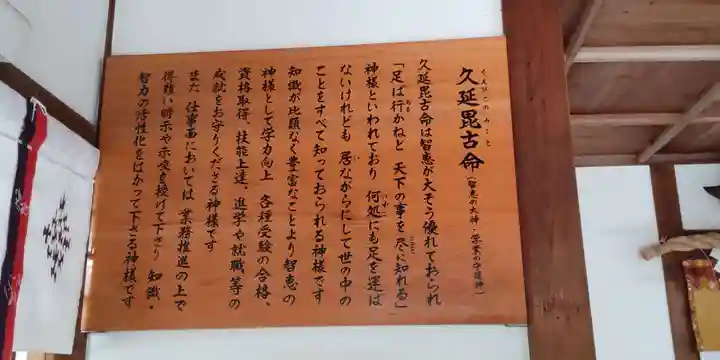 久延毘古命
くえびこのみこと
(智恵の大神・学業の守護神)
久延毘古命は智恵が大そう優れておられ
「足は行かねど 天下の事を尽に知れる」
神様といわれており 何処にも足を運ば
ないけれども 居ながらにして世の中の
ことをすべて知っておられる神様です
知識が比類なく豊富なことより智恵の
神様として学力向上、各種受験の合格、
資格取得、技能上達、進学や就職、等の
成就をお守りくださる神様です
また 仕事面においては 業務推進の上で
得難い啓示や示唆を授けて下さり 知識・
智力の活性化をはかって下さる神様です